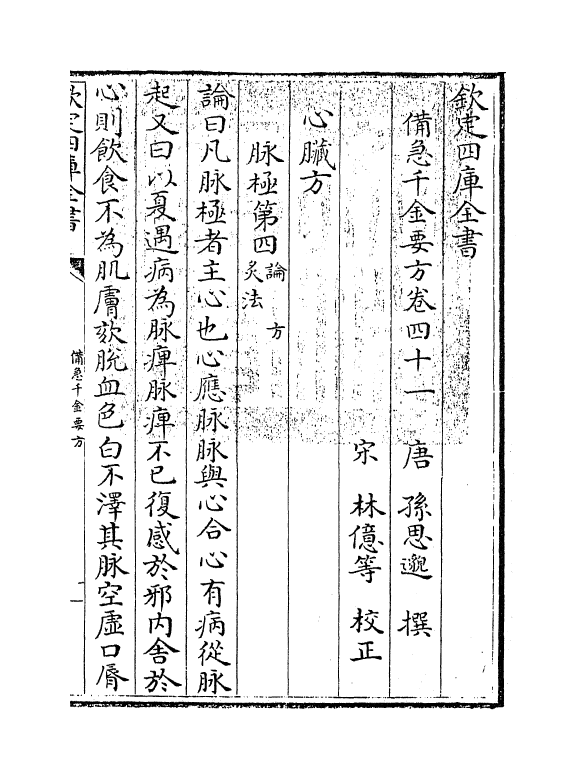 欽定四庫全書
備急千金要方卷四十一 唐 孫思邈 撰
宋 林億等 校正
心臟方
脉極第四 論 方 炙法
論曰凡脉極者主心也心應脉脉與心合心有病從脉
起又曰以夏遇病為脉痺脉痺不已復感於邪内舍於
心則飲食不為肌膚欬脫血色白不澤其脉空虛口唇
欽定四庫全書
備急千金要方
一